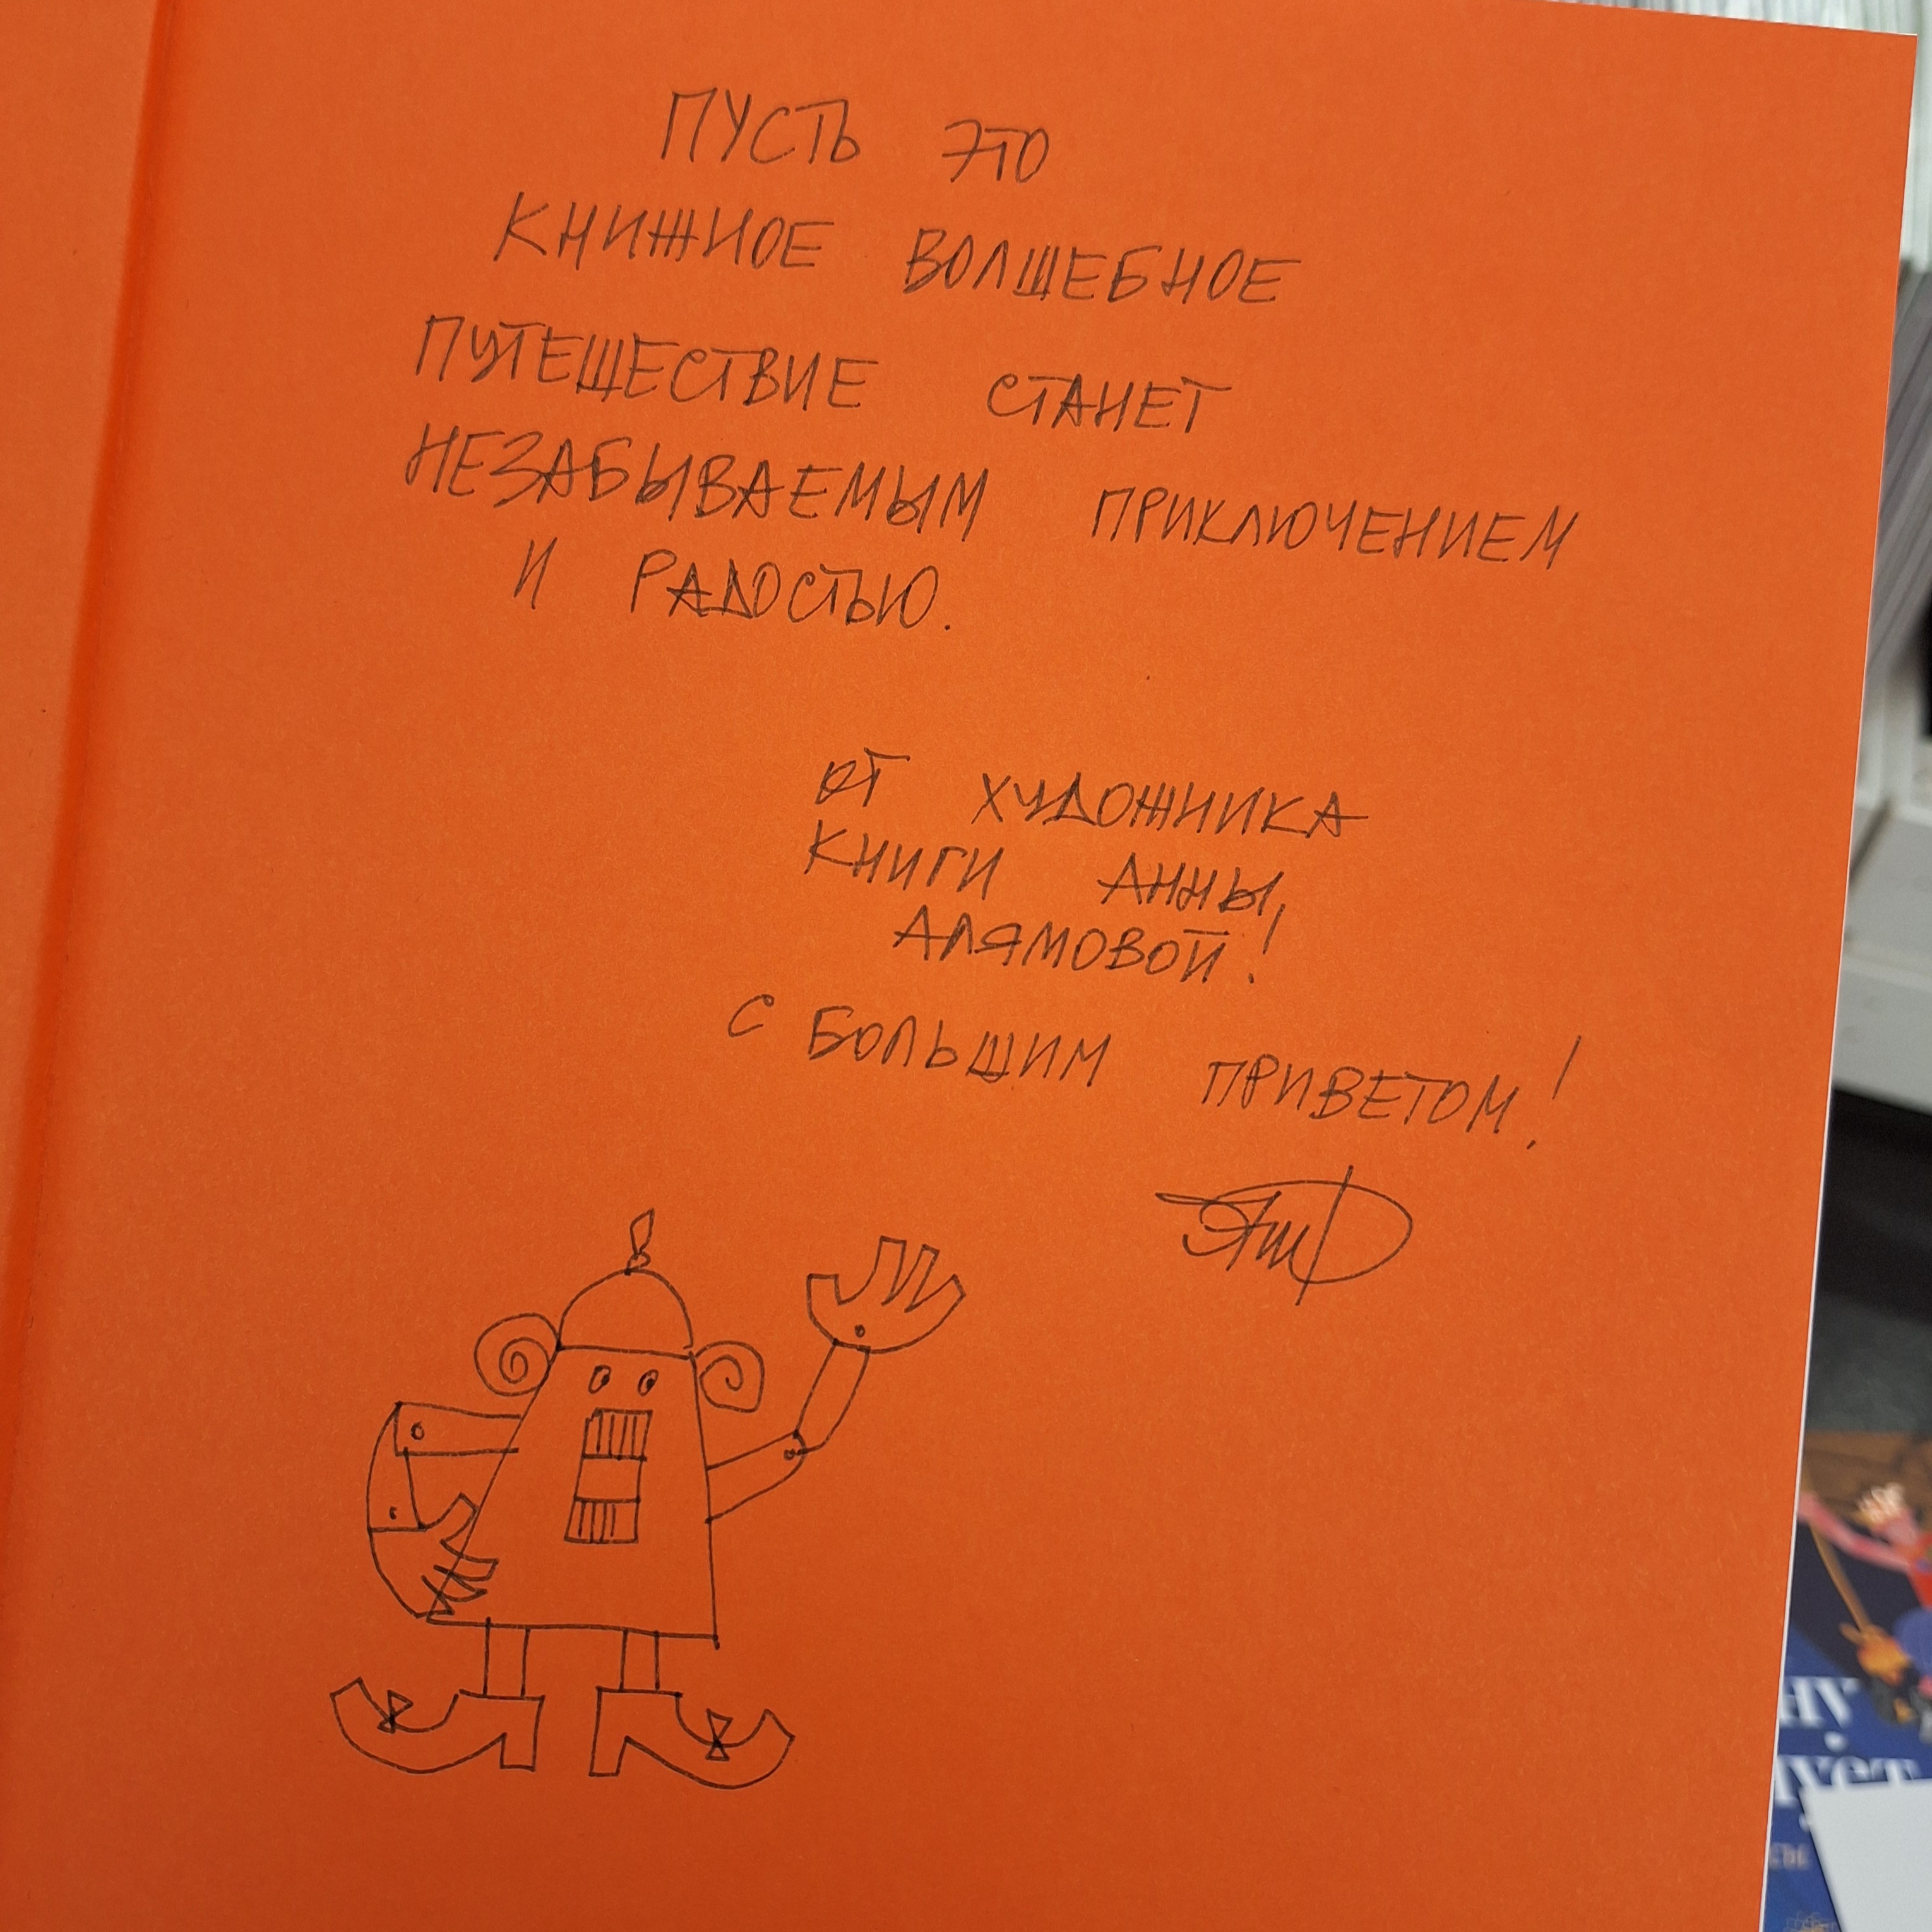 ПУСТЬ ЭТО
КНИЖНОЕ ВОЛШЕБНОЕ
ПУТЕШЕСТВИЕ СТАНЕТ
НЕЗАБЫВАЕМЫМ ПРИКЛЮЧЕНИЕМ
И РАДОСТЬЮ.
ОТ ХУДОЖНИКА
КНИГИ АННЫ
АЛЯМОВОЙ!
С БОЛЬШИМ ПРИВЕТОМ!